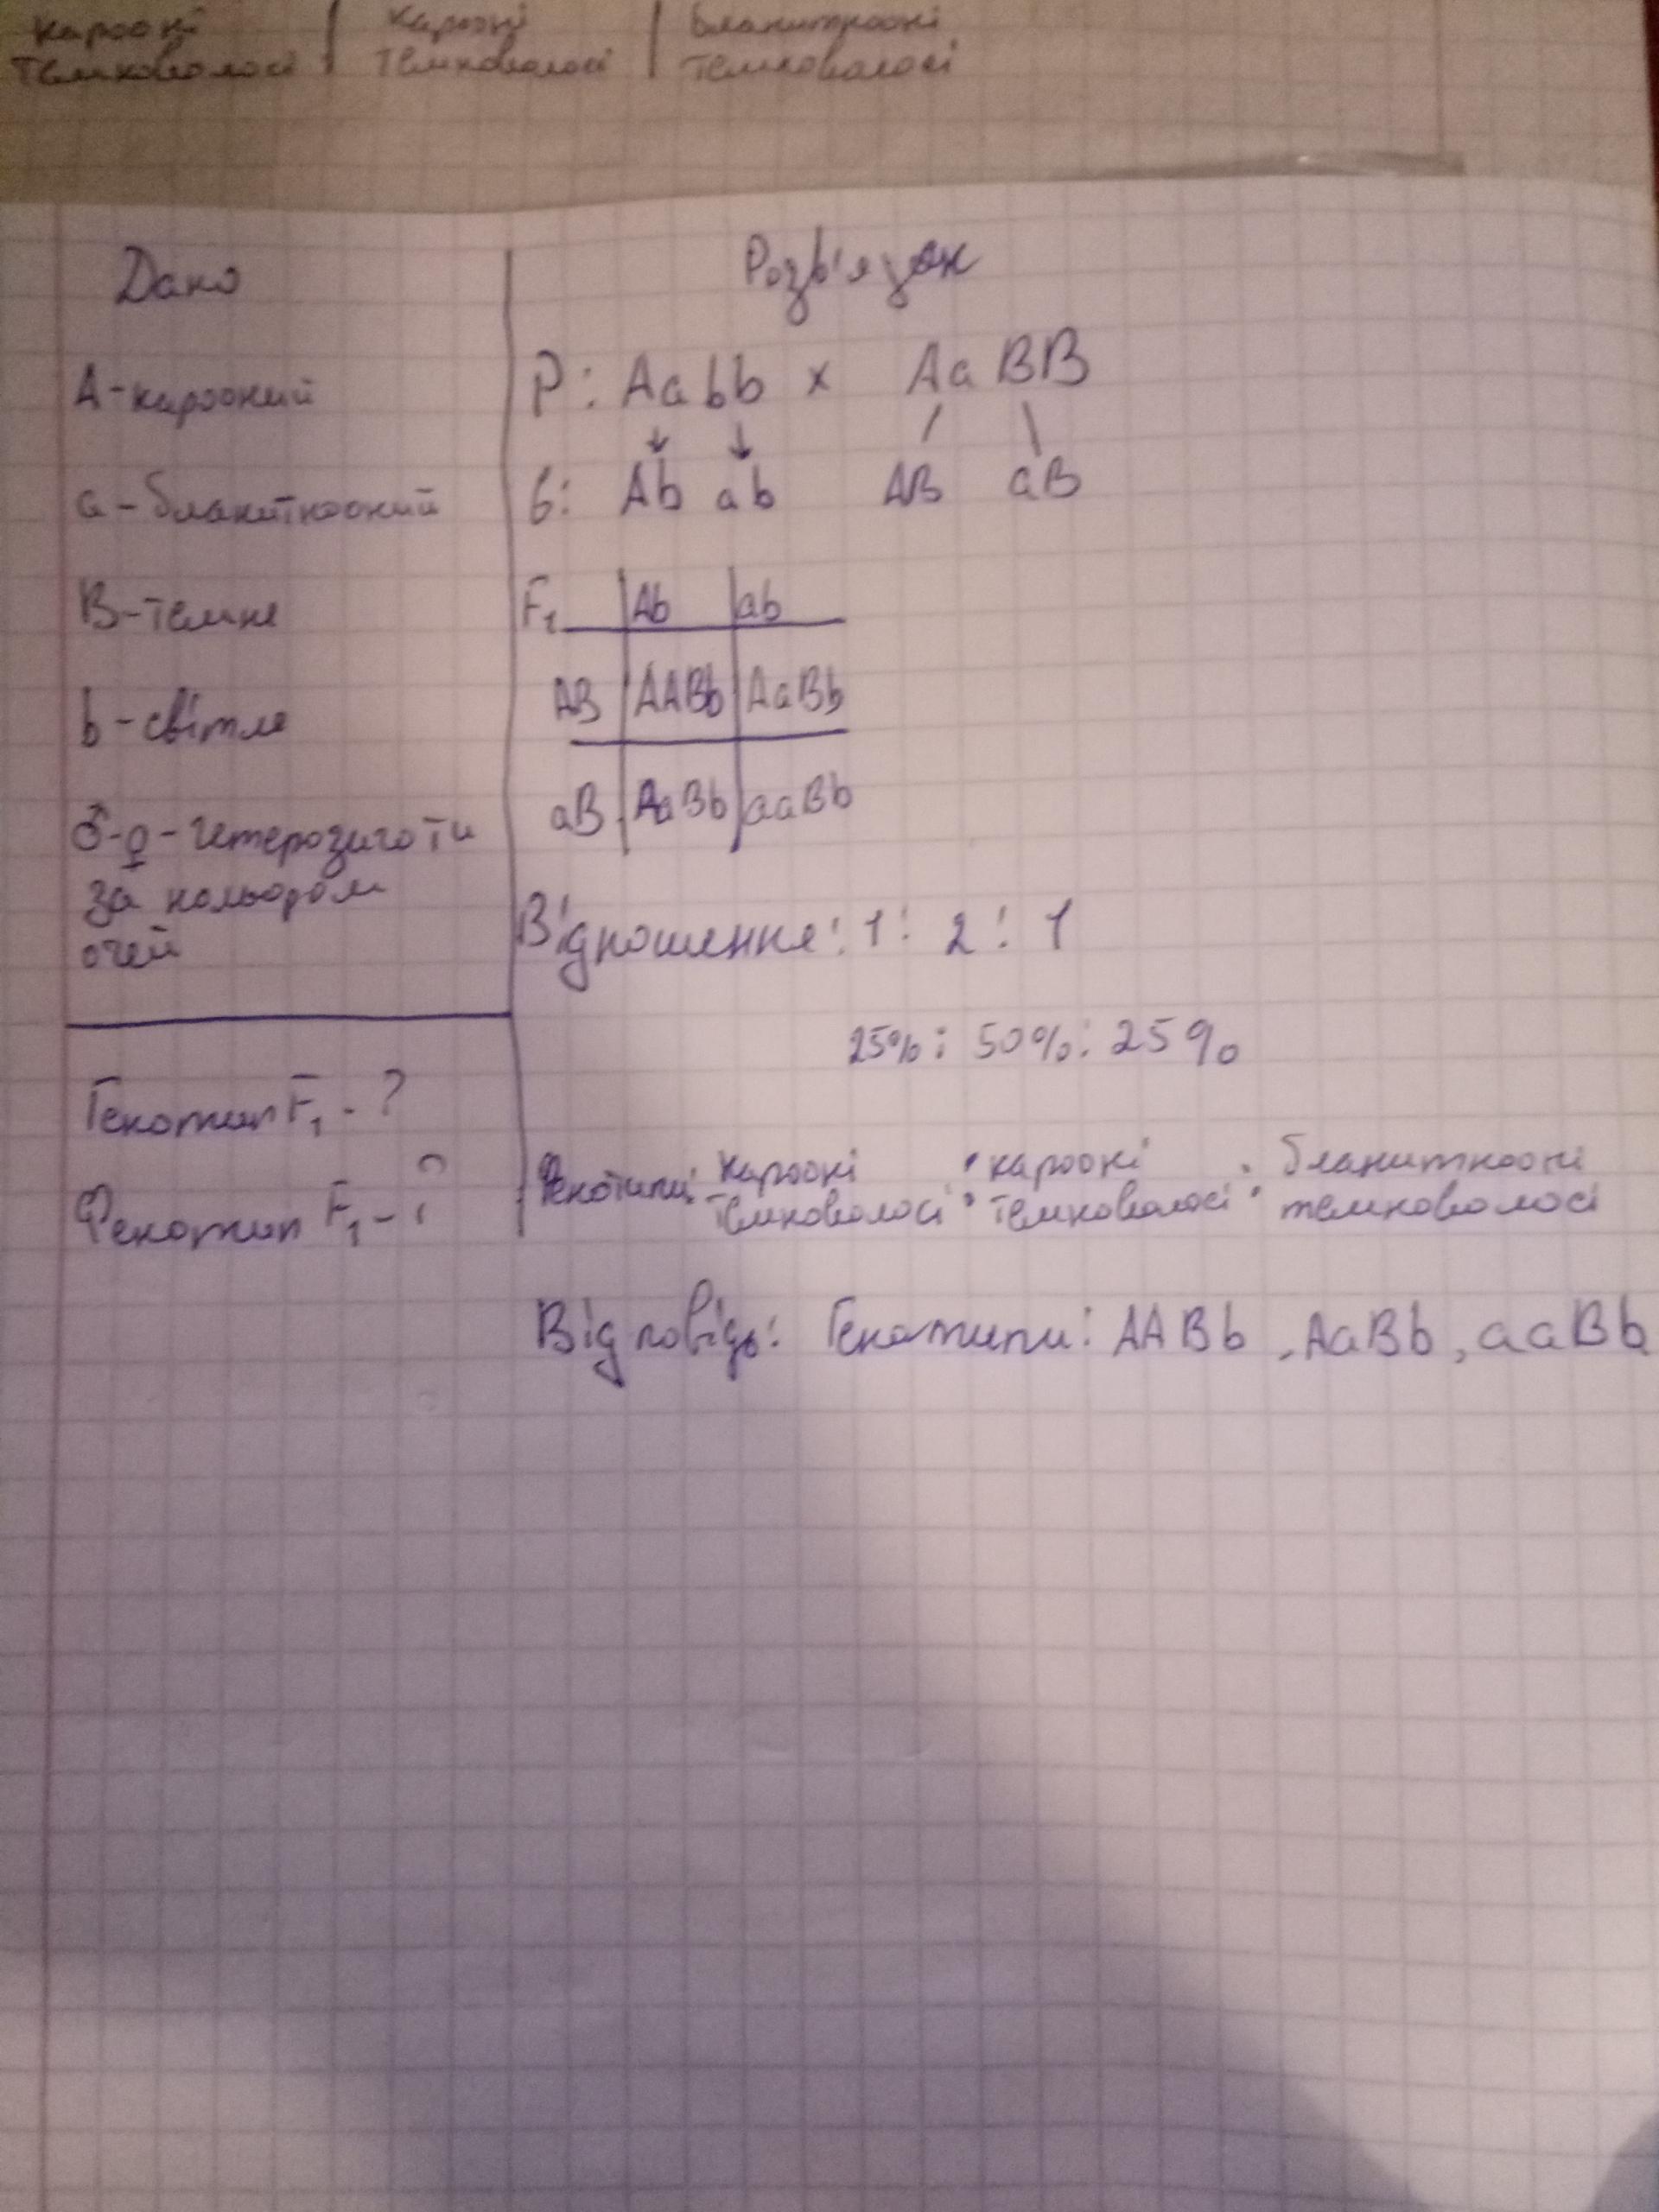 кароокі | кароокі | блакитноокі
темноволосі | темноволосі | темноволосі
Дано
Розв'язок
A - кароокий
P: Aabb x AaBB
a - блакитноокий
G: Ab ab AB aB
B - темне
F1 Ab ab
b - світле
AB AABb AaBb
aB AaBb aaBb
♂-♀ - гетерозиготи
за кольором
очей
Відношення: 1 : 2 : 1
25% : 50% : 25%
Генотип F1 - ?
Фенотип F1 - ?
Фенотипи: кароокі : кароокі : блакитноокі
темноволосі темноволосі темноволосі
Відповідь: Генотипи: AABb, AaBb, aaBb